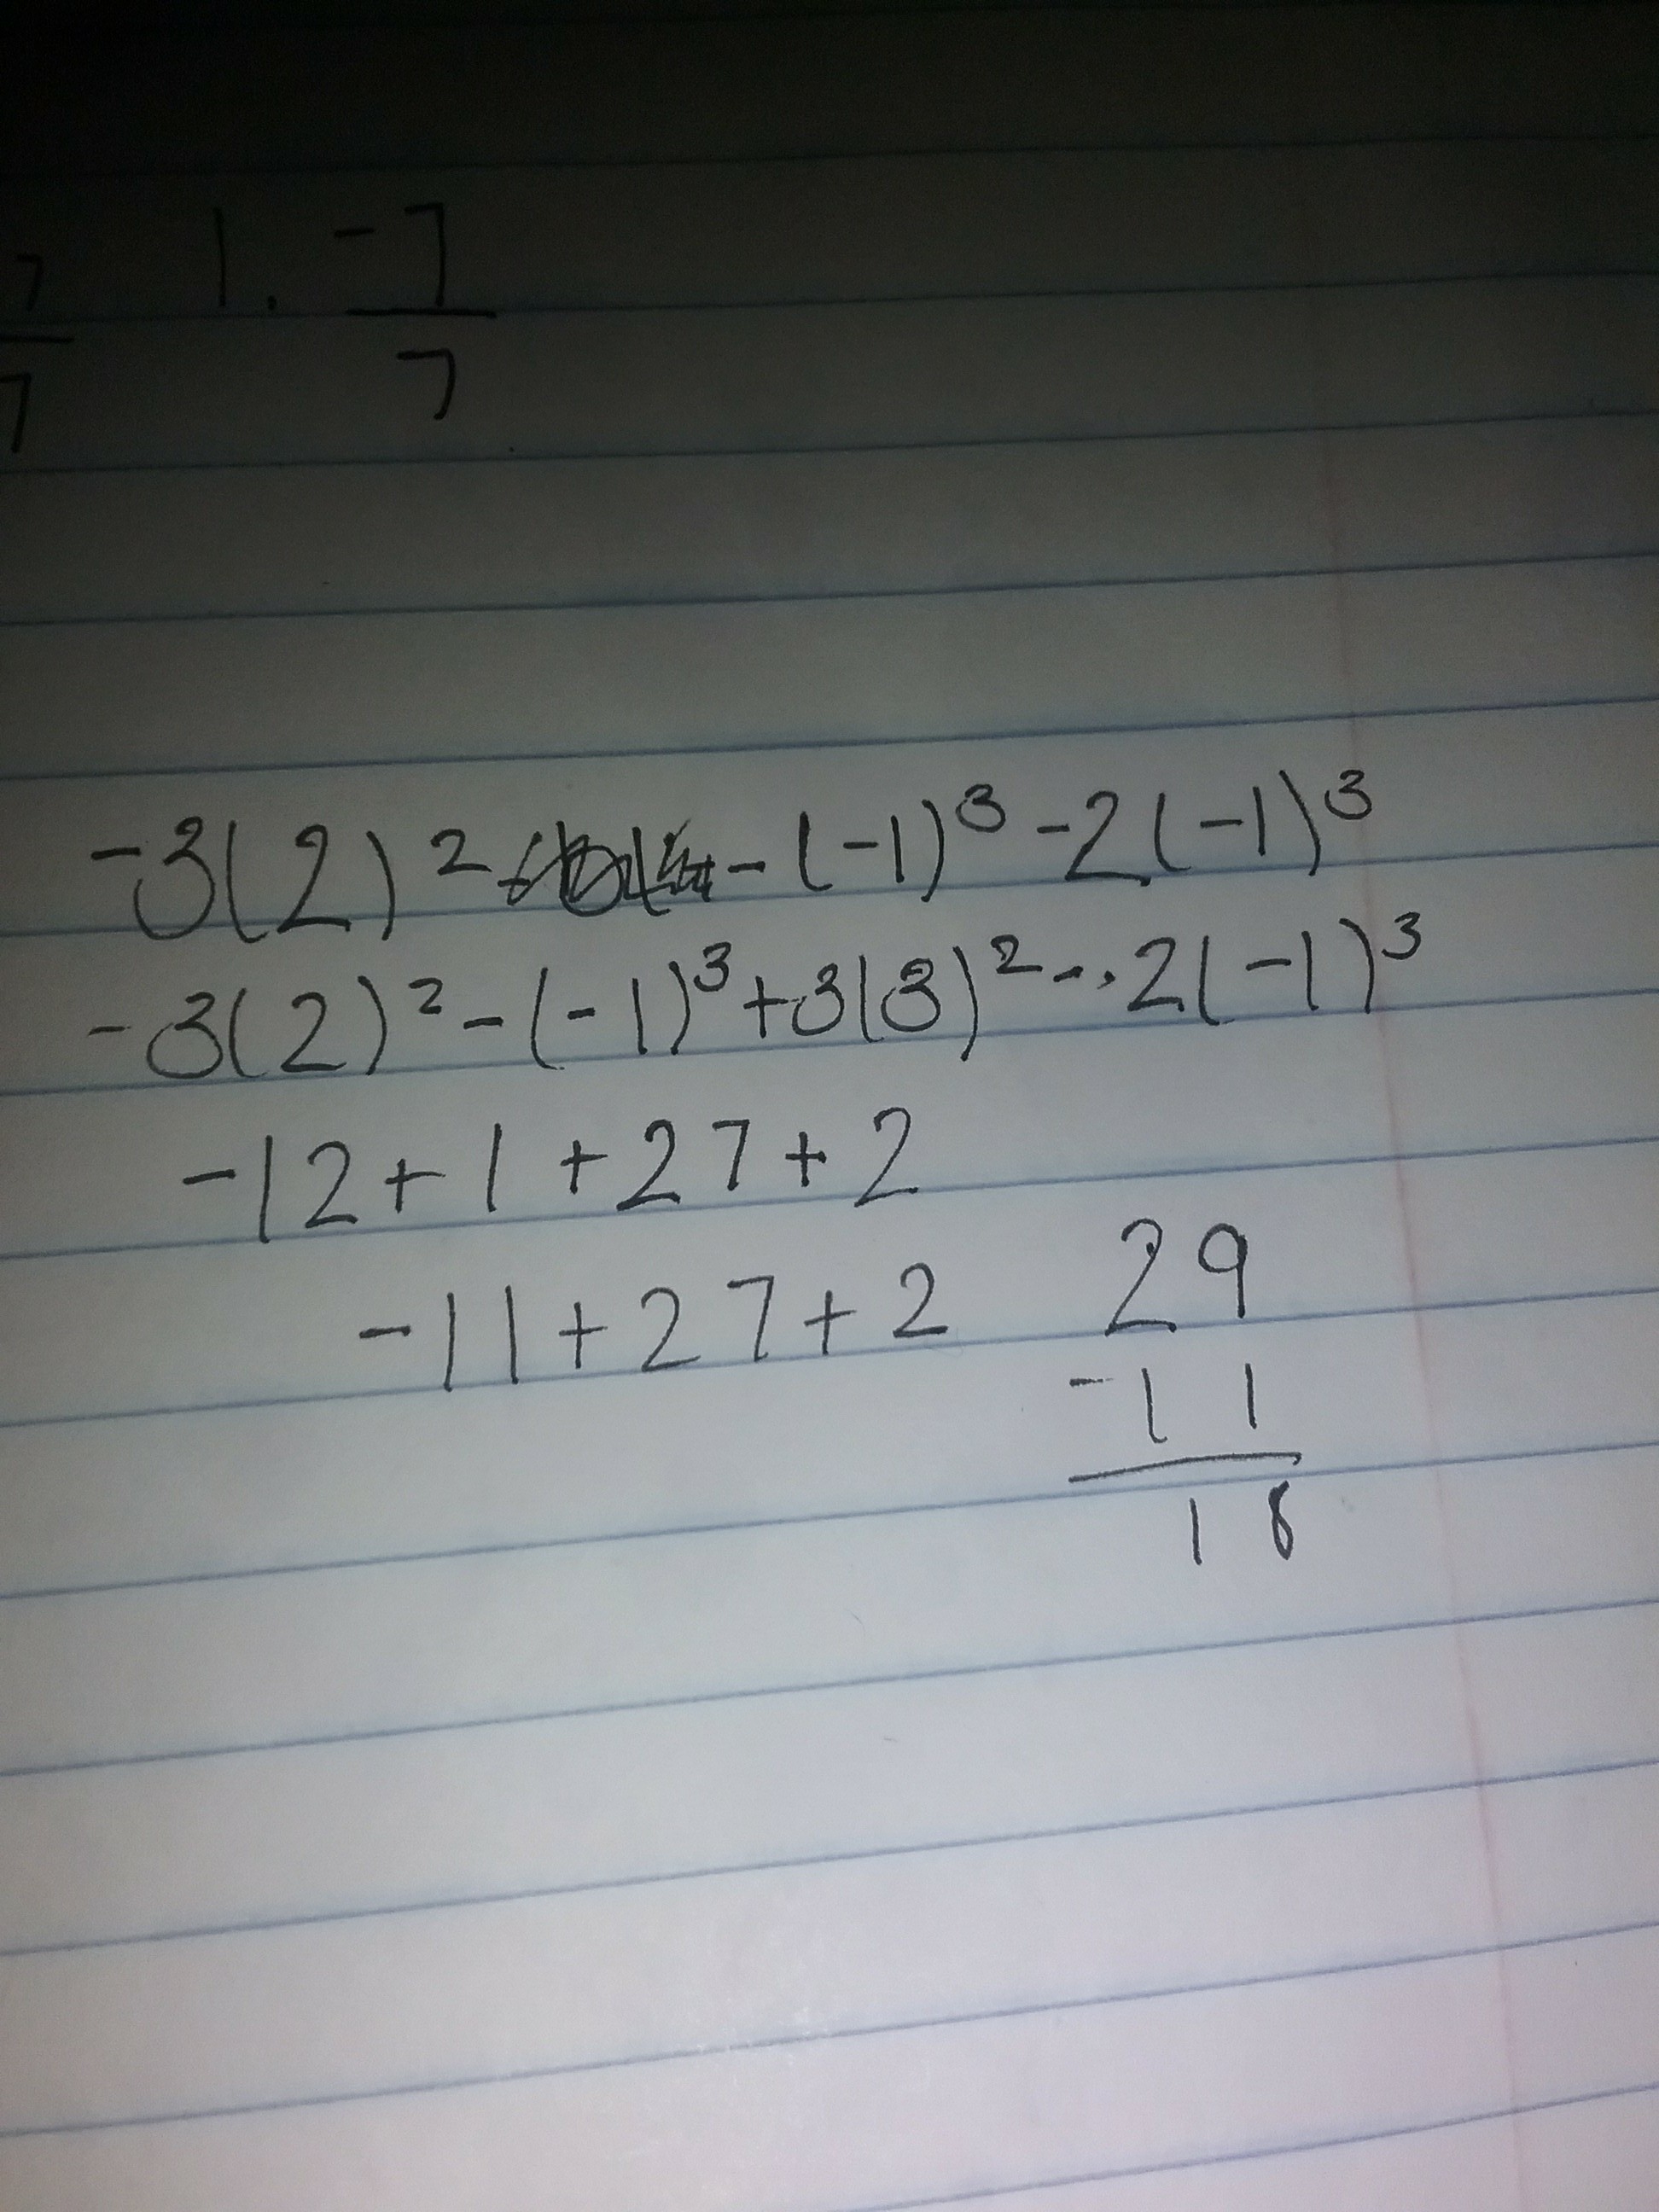 7 1. -7
7 7
-3(2)² -(-1)³ -2(-1)³
-3(2)² -(-1)³ +3(3)² - . 2(-1)³
-12+1+27+2
-11+27+2
29
-11
18